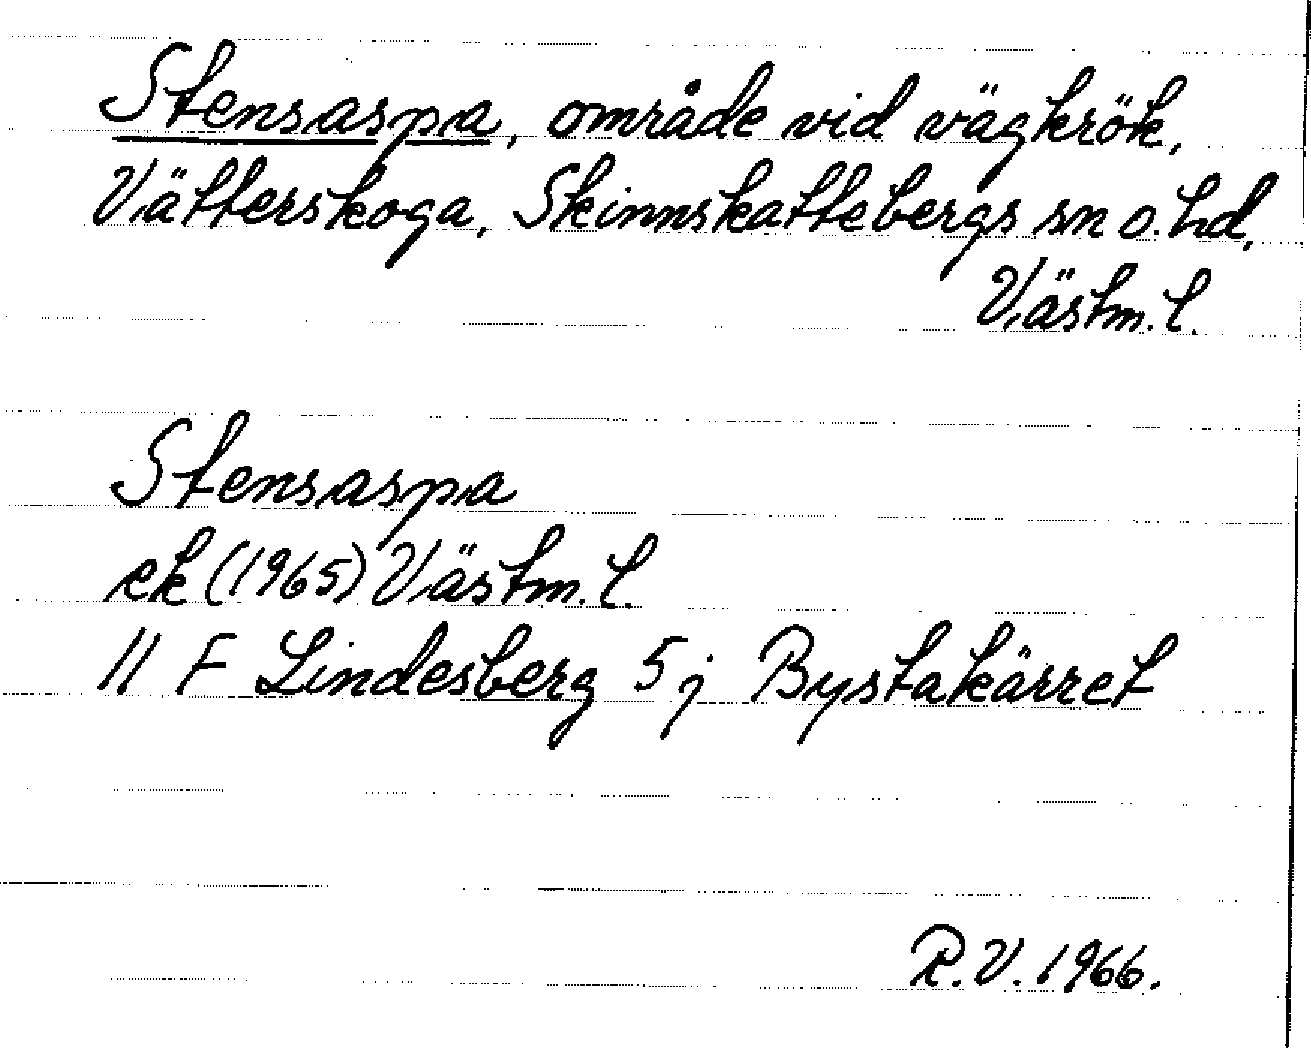 Stensaspa, område vid vägkrök,
Vätterskoga, Skinnskattebergs sn o. hd,
Västm. l.
Stensaspa
ek (1965) Västm. l.
11 F Lindesberg 5 j Bystakärret
R.V. 1966.